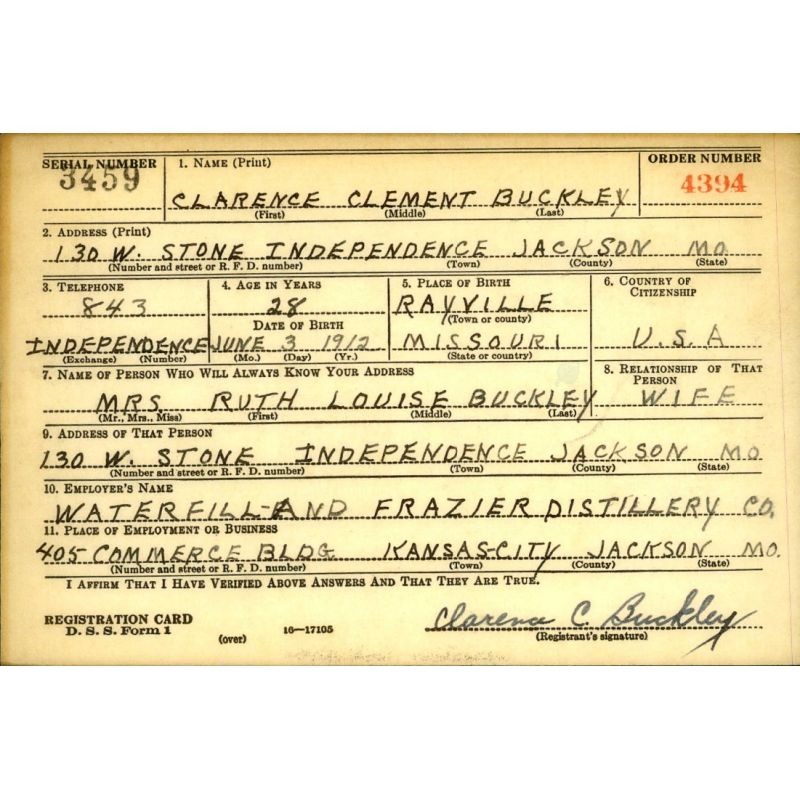 SERIAL NUMBER 1. NAME (Print) ORDER NUMBER
3459 CLARENCE CLEMENT BUCKLEY 4394
(First) (Middle) (Last)
2. ADDRESS (Print)
130 W. STONE INDEPENDENCE JACKSON MO
(Number and street or R. F. D. number) (Town) (County) (State)
3. TELEPHONE 4. AGE IN YEARS 5. PLACE OF BIRTH 6. COUNTRY OF CITIZENSHIP
843 28 RAYVILLE
DATE OF BIRTH (Town or county)
INDEPENDENCE JUNE 3 1912 MISSOURI U.S.A
(Exchange) (Number) (Mo.) (Day) (Yr.) (State or country)
7. NAME OF PERSON WHO WILL ALWAYS KNOW YOUR ADDRESS 8. RELATIONSHIP OF THAT PERSON
MRS. RUTH LOUISE BUCKLEY WIFE
(Mr., Mrs., Miss) (First) (Middle) (Last)
9. ADDRESS OF THAT PERSON
130 W. STONE INDEPENDENCE JACKSON MO
(Number and street or R. F. D. number) (Town) (County) (State)
10. EMPLOYER'S NAME
WATERFILL-AND FRAZIER DISTILLERY CO.
11. PLACE OF EMPLOYMENT OR BUSINESS
405 COMMERCE BLDG KANSAS-CITY JACKSON MO.
(Number and street or R. F. D. number) (Town) (County) (State)
I AFFIRM THAT I HAVE VERIFIED ABOVE ANSWERS AND THAT THEY ARE TRUE.
REGISTRATION CARD Clarence C Buckley
D. S. S. Form 1 (over) 16—17105 (Registrant's signature)